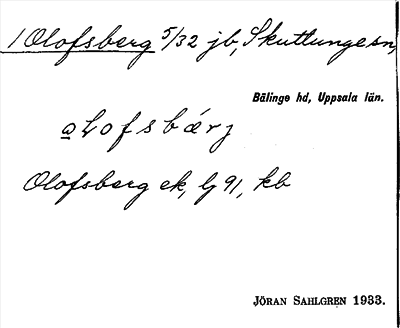 1 Olofsberg 5/32 jb, Skuttunge sn,
Bälinge hd, Uppsala län.
Olofsberg ek, lj 91, kb
JÖRAN SAHLGREN 1933.